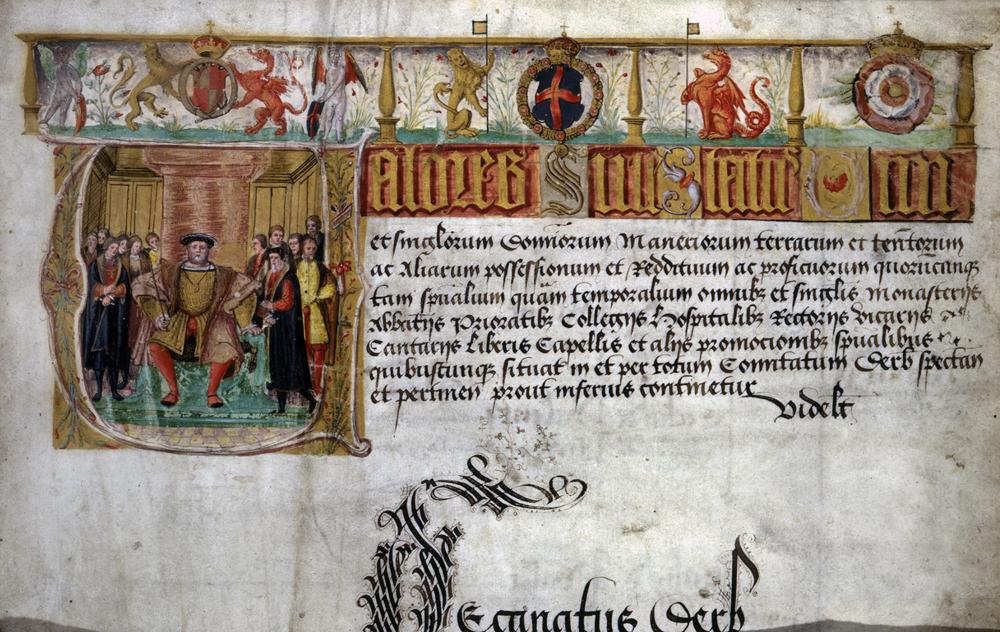 Valores Sum Statū Om
et singlorum Domiorum Maneriorum terrarum et tentorum
ac Aliarum possessionum et Reddituum ac proficuorum quorumcunqꝫ
tam spualium quam temporalium omnibꝫ et singlis Monasterijs
Abbatijs Prioratibꝫ Collegijs Hospitalibꝫ Rectorijs Vicarijs
Cantarijs Liberis Capellis et alijs promocionibꝫ spualibus
quibuscunqꝫ situat in et per totum Comitatum Derb spectan
et pertinen prout inferius continetur
Videlt
Decanatus Derb